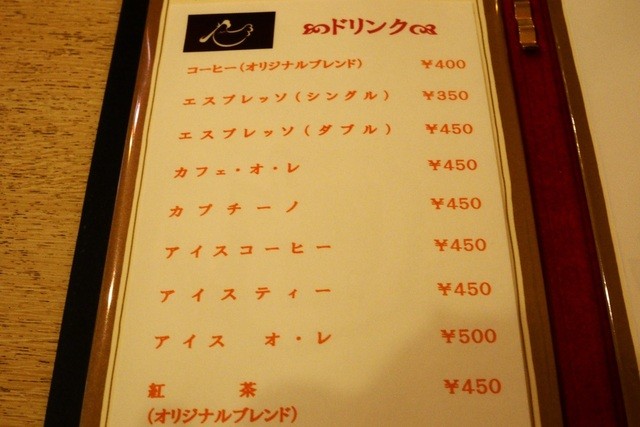 ドリンク
コーヒー(オリジナルブレンド) ¥400
エスプレッソ(シングル) ¥350
エスプレッソ(ダブル) ¥450
カフェ・オ・レ ¥450
カプチーノ ¥450
アイスコーヒー ¥450
アイスティー ¥450
アイス オ・レ ¥500
紅 茶 ¥450
(オリジナルブレンド)